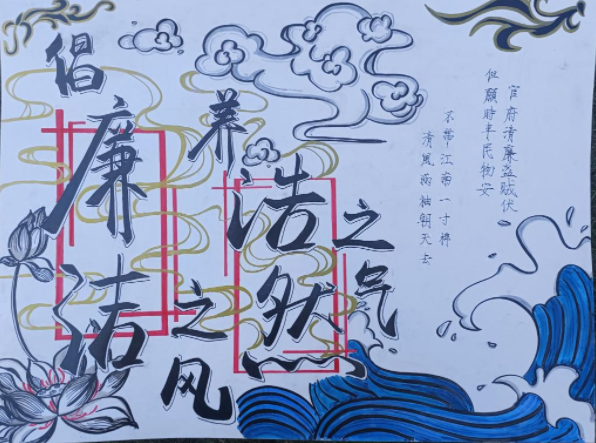 倡廉洁之风
养浩然之气
官府清廉盗贼伏
但願時丰民物安
不帶江南一寸棉
清風两袖朝天去